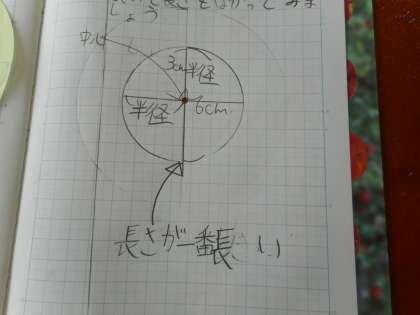 長さをはかってみま
しょう
中心
3cm半径
半径 6cm
長さが一番長い